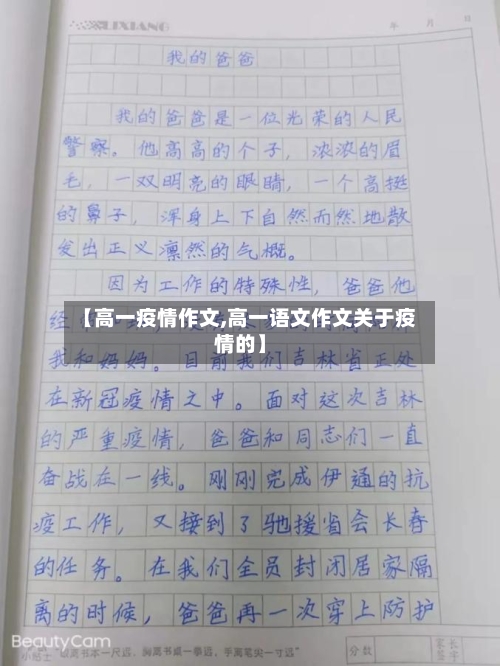 LIXIANG
年 月 日
我的爸爸
我的爸爸是一位光荣的人民
警察。他高高的个子，浓浓的眉
毛，一双明亮的眼睛，一个高挺
的鼻子，浑身上下自然而然地散
发出正义凛然的气概。
因为工作的特殊性，爸爸他
【高一疫情作文,高一语文作文关于疫
情的】
我和妈妈。目前我们吉林省正处
在新冠疫情之中。面对这次吉林
的严重疫情，爸爸和同志们一直
奋战在一线。刚刚完成伊通的抗
疫工作，又接到了驰援省会长春
的任务。在我们全员封闭居家隔
离的时候，爸爸再一次穿上防护
BeautyCam
眼离书本一尺远，胸离书桌一拳远，手离笔尖一寸远"
分数
家长
签字